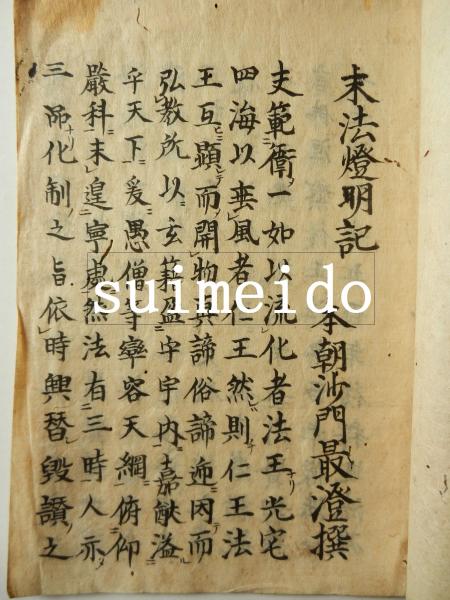 末法燈明記
本朝沙門最澄撰
夫範衞一如以流化者法王光宅
四海以埀風者仁王然則仁王法
王互顯而開物真諦俗諦逓因而
弘教所以玄籍盈宇内嘉猷溢
乎天下爰愚僧等率容天網俯仰
嚴科未遑寧處然法有三時人亦
三品化制之旨依時興替毀讃之
suimeido